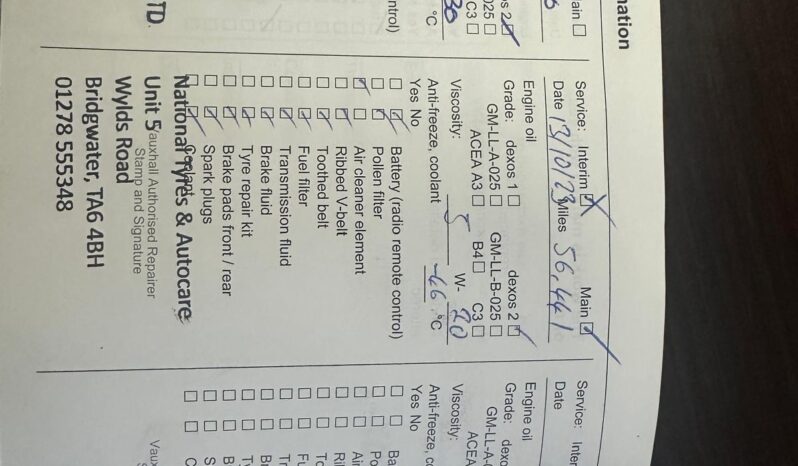 mation
ain
os 2
025
C3
30
°C
ntrol)
TD.
Service: Interim Main
Date 13/10/23 Miles 56,441
Engine oil
Grade: dexos 1 dexos 2
GM-LL-A-025 GM-LL-B-025
ACEA A3 B4 C3
Viscosity: 5 W- 20
Anti-freeze, coolant -46 °C
Yes No
Battery (radio remote control)
Pollen filter
Air cleaner element
Ribbed V-belt
Toothed belt
Fuel filter
Transmission fluid
Brake fluid
Tyre repair kit
Brake pads front / rear
Spark plugs
Coolant
National Tyres & Autocare
Unit 5
Vauxhall Authorised Repairer
Stamp and Signature
Wylds Road
Bridgwater, TA6 4BH
01278 555348
Service: Inter
Date
Engine oil
Grade: dexo
GM-LL-A-0
ACEA
Viscosity:
Anti-freeze, co
Yes No
Ba
Po
Air
Ri
To
Fu
Tr
Br
Ty
B
S
C
Vaux